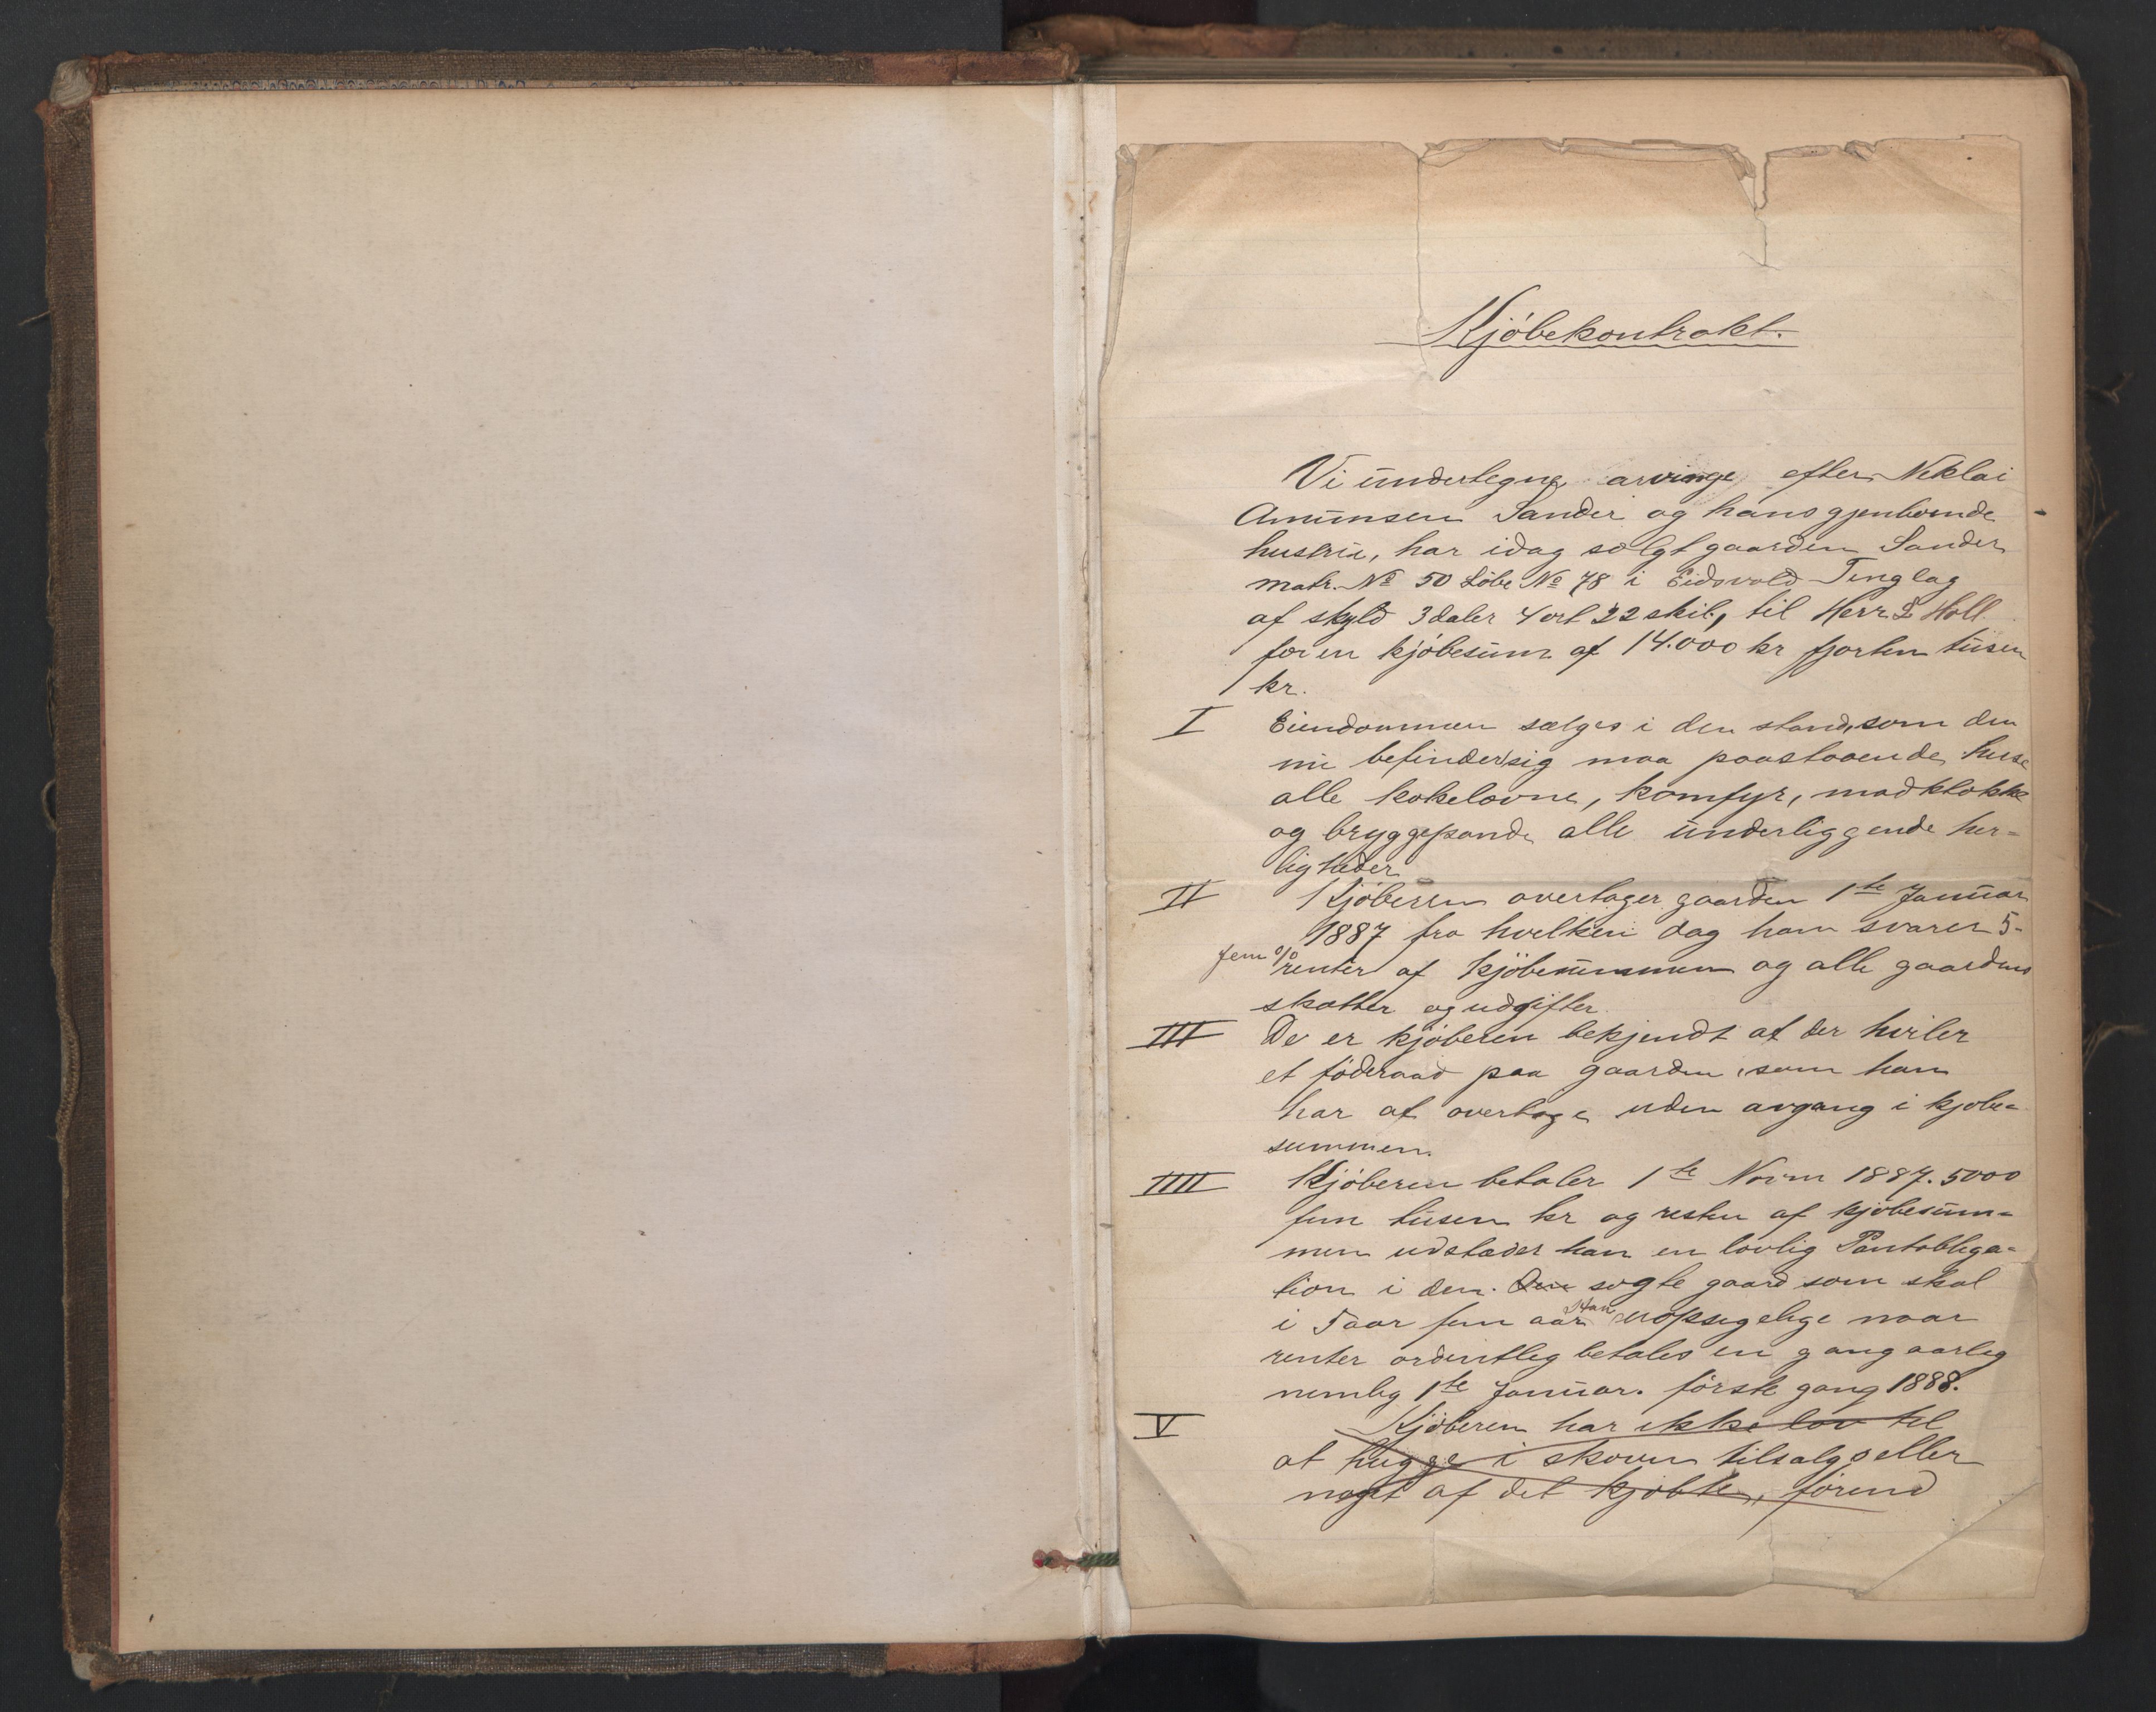 Kjøbekontrakt.
Vi undertegne arvinge efter Niklai
Amunsen Sander og hans gjenboende
hustru, har idag solgt gaarden Sander
matr. No 50 Løbe No 78 i Eidsvold Tinglag
af skyld 3 daler 4 ort 22 skil, til Herr L Holl
for en kjøbesum af 14.000 kr fjorten tusen
kr.
I Eiendommen sælges i den stand, som den
nu befinder sig maa paastaaende huse
alle kakelovne, komfyr, madklokke
og bryggepande alle underliggende her=
ligheder
II Kjøberen overtager gaarden 1te Januar
1887 fra hvilken dag han svarer 5-
fem % renter af kjøbesummen og alle gaardens
skatter og udgifter.
III De er kjøberen bekjendt at der hviler
et føderaad paa gaarden, som han
har at overtage uden avgang i kjøbe=
summen.
IIII Kjøberen betaler 1te 1887. 5000
fem tusen kr og resten af kjøbesum=
men udstæder han en lovlig Pantobliga=
tion i den. Den sogte gaard som skal
i 5 aar fem aar Staa uopsigelige naar
renter ordentlig betales en gang aarlig
nemlig 1te Januar. første gang 1888.
V Kjøberen har ikke lov til
at hugge i skoven tilsalgs eller
noget af det kjøbte, førend